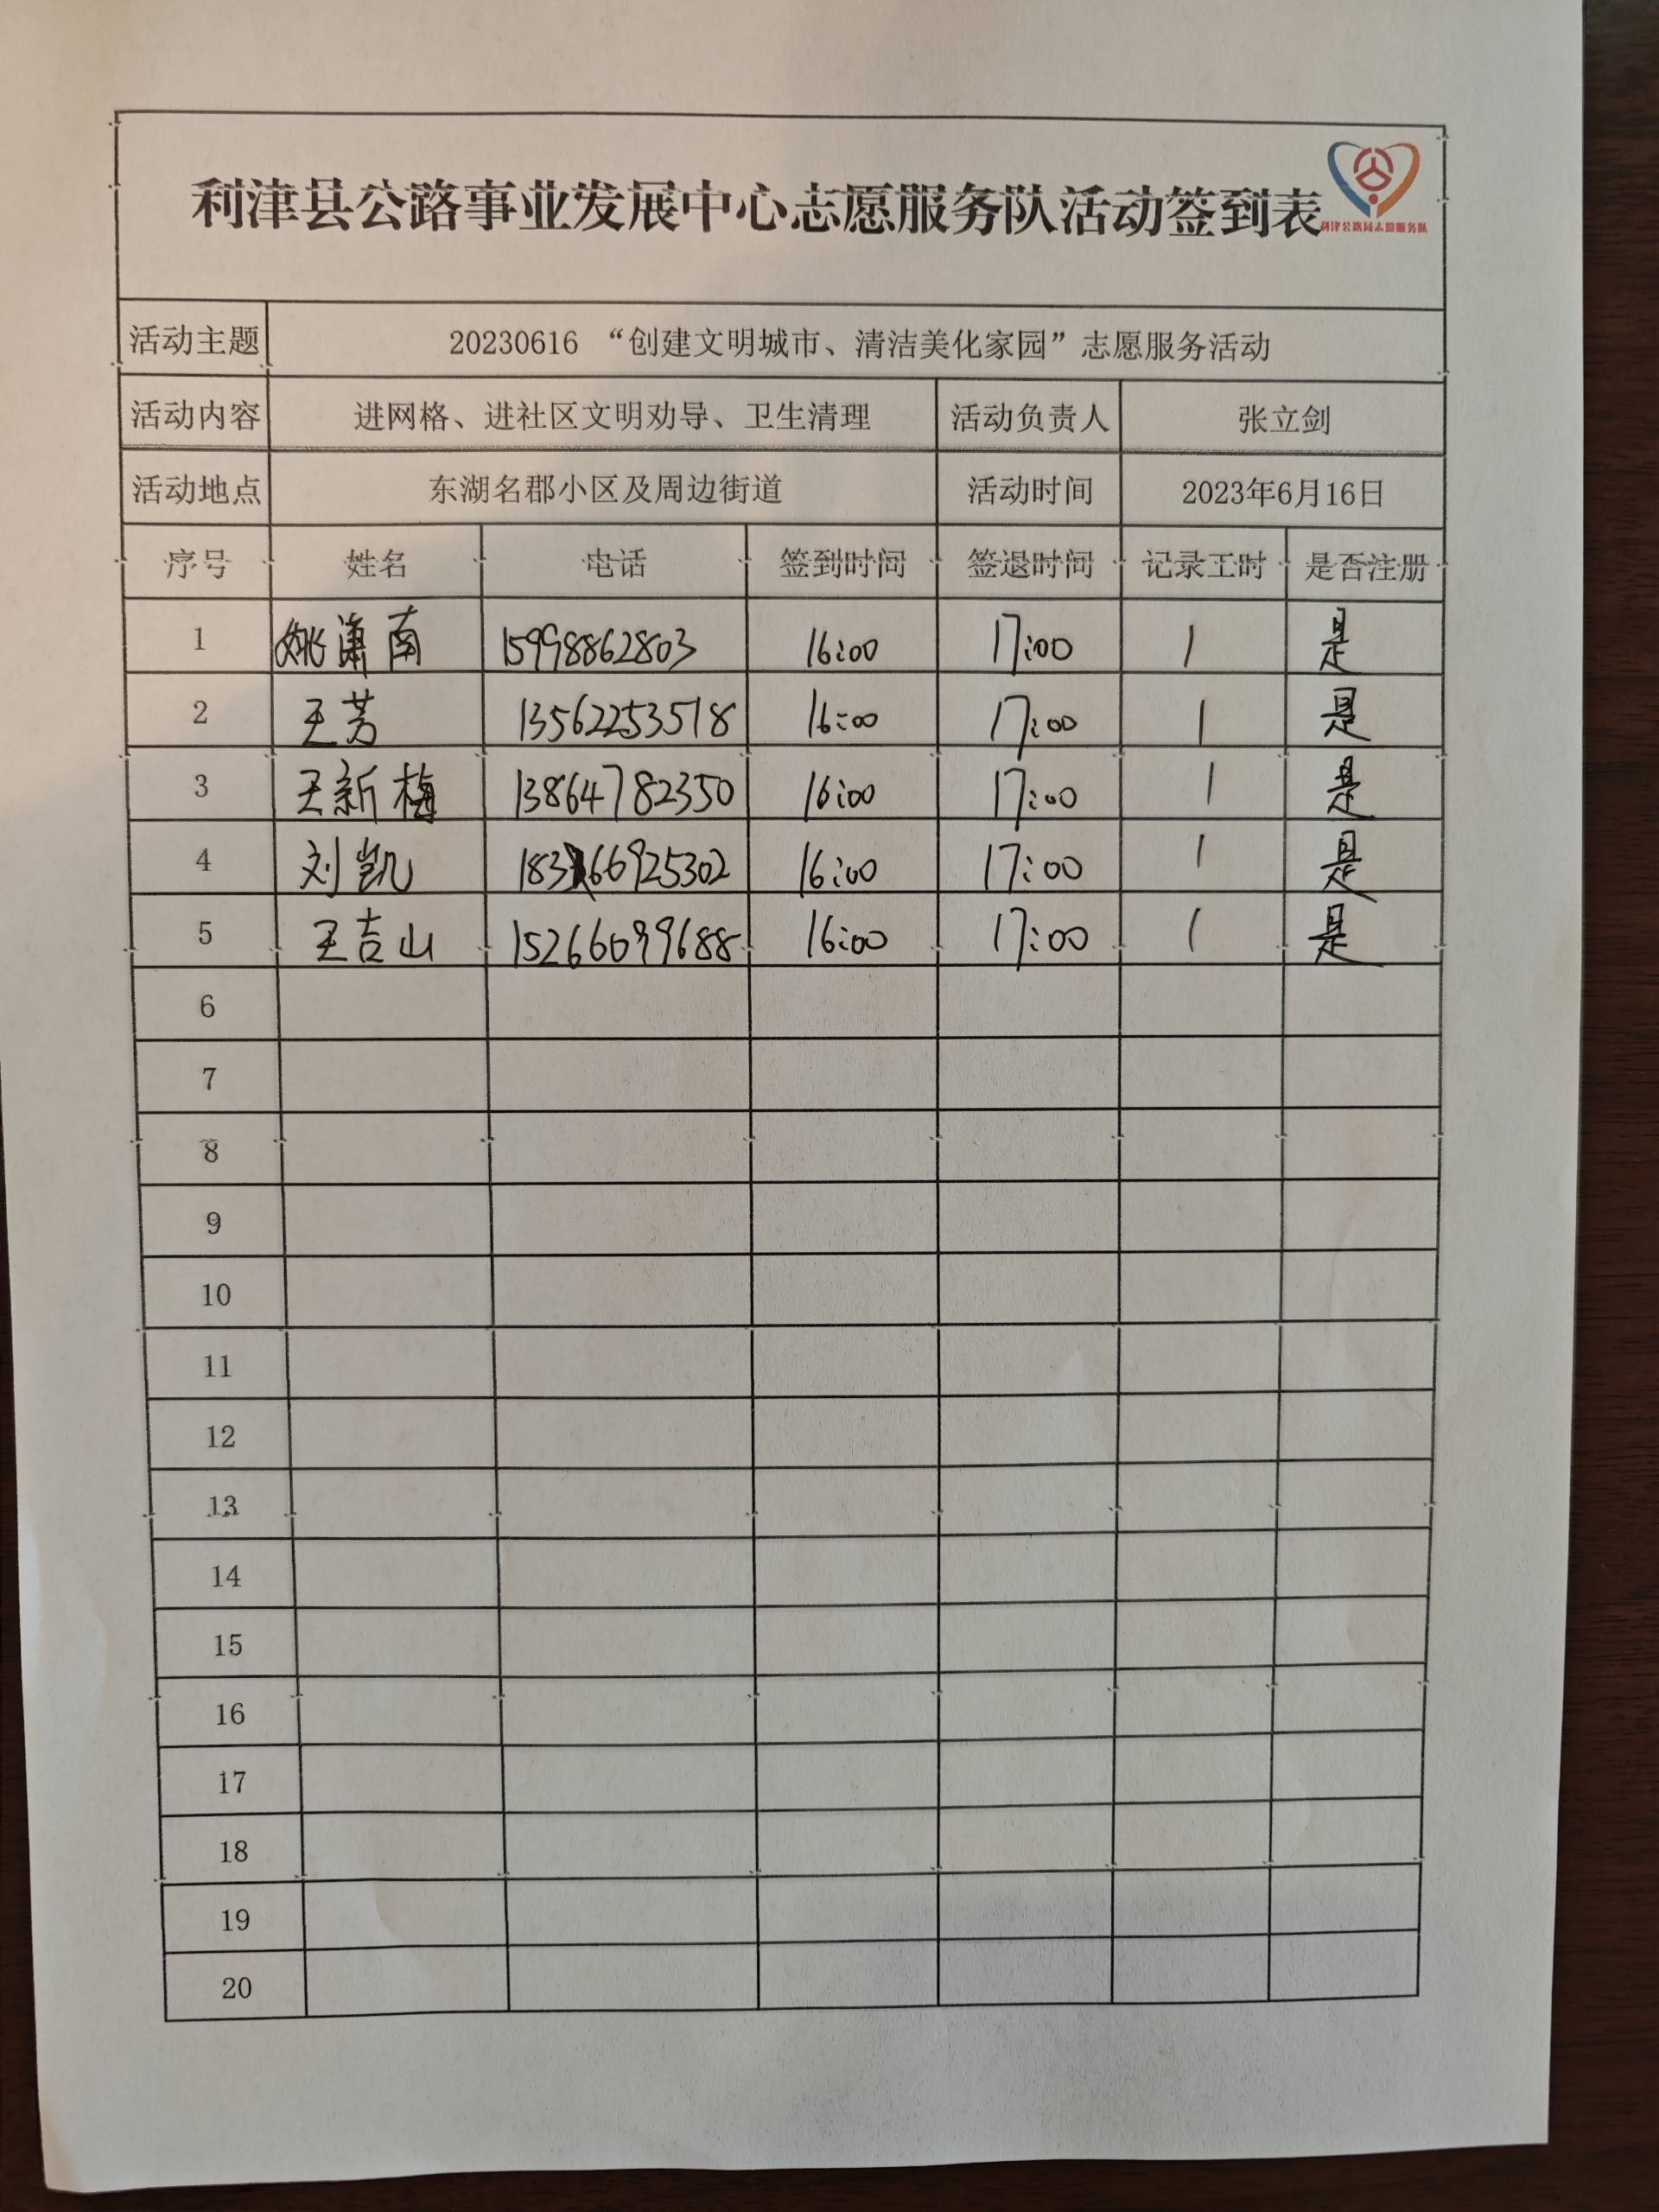 利津县公路事业发展中心志愿服务队活动签到表
利津公路局志愿服务队
活动主题 20230616 “创建文明城市、清洁美化家园”志愿服务活动
活动内容 进网格、进社区文明劝导、卫生清理 活动负责人 张立剑
活动地点 东湖名郡小区及周边街道 活动时间 2023年6月16日
序号 姓名 电话 签到时间 签退时间 记录工时 是否注册
1 姚潇南 15998862803 16:00 17:00 1 是
2 王芳 13562253518 16:00 17:00 1 是
3 王新梅 13864782350 16:00 17:00 1 是
4 刘凯 18366925302 16:00 17:00 1 是
5 王吉山 15266099688 16:00 17:00 1 是
6
7
8
9
10
11
12
13
14
15
16
17
18
19
20